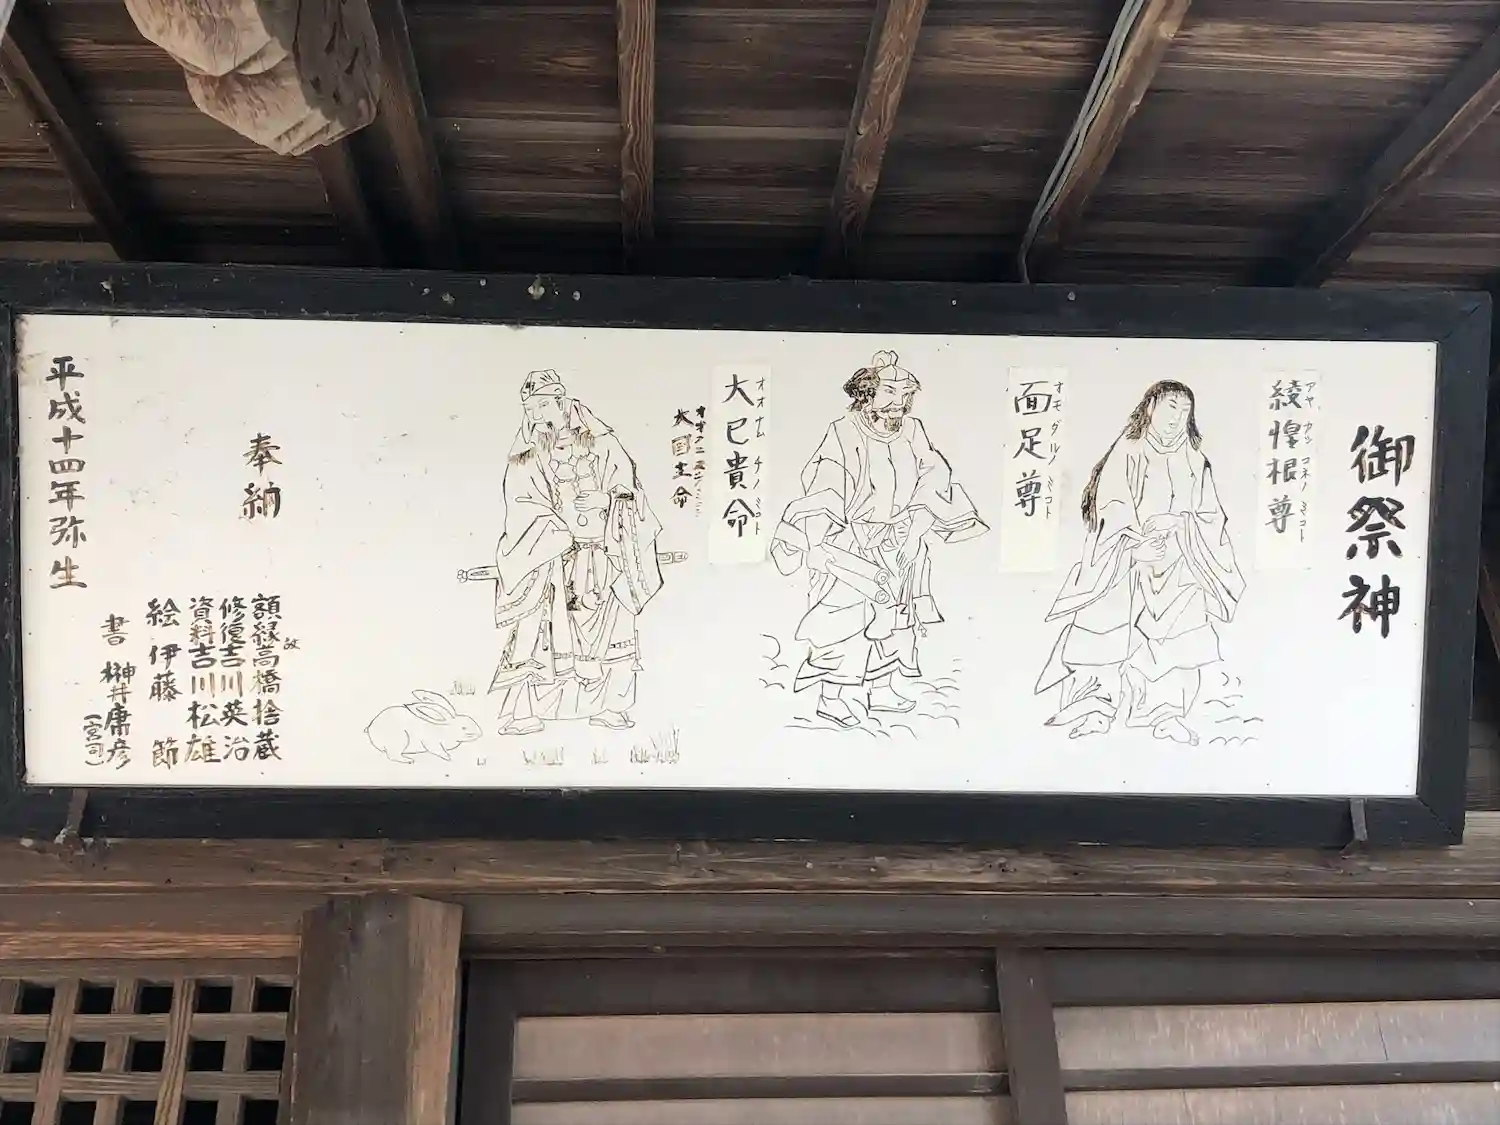 御祭神
綾惶根尊
アヤカシコネノミコト
面足尊
オモダルノミコト
大巳貴命
オオナムチノミコト
大国主命
奉納
額縁 故高橋捨蔵
修復 吉川英治
資料 吉川松雄
絵 伊藤 節
書 榊井庸彦
(宮司)
平成十四年弥生